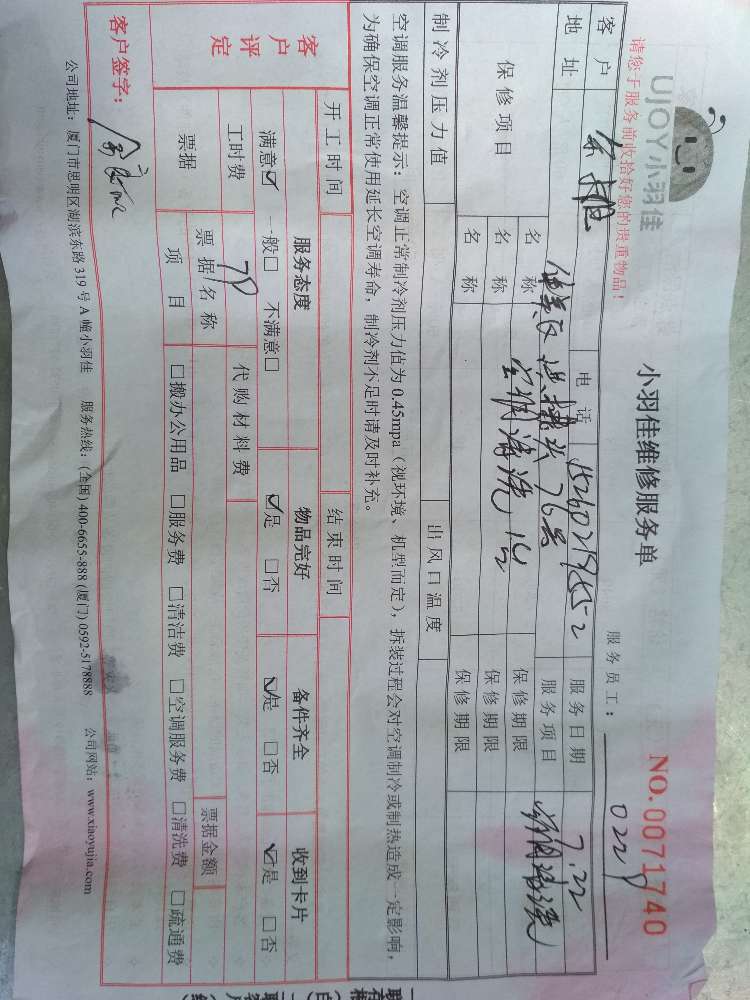 UJOY小羽佳
小羽佳维修服务单
NO.0071740
请您于服务前收拾好您的贵重物品!
服务员工: 0229
客户 电话 服务日期 7.22
地址 76号 服务项目 空调清洗
保修项目 名称 空调清洗1台 保修期限
名称 保修期限
名称 保修期限
制冷剂压力值 出风口温度
空调服务温馨提示: 空调正常制冷剂压力值为0.45mpa (视环境、机型而定), 拆装过程会对空调制冷或制热造成一定影响,
为确保空调正常使用延长空调寿命, 制冷剂不足时请及时补充。
开工时间 结束时间
客户评定 服务态度 物品完好 备件齐全 收到卡片
满意☑ 一般□ 不满意□ ☑是 □否 ☑是 □否 ☑是 □否
工时费 70 代购材料费
票据 票据名称 票据金额
项目 □搬办公用品 □服务费 □清洁费 □空调服务费 □清洗费 □疏通费
客户签字:
公司地址: 厦门市思明区湖滨东路319号A幢小羽佳 服务热线: (全国) 400-6655-888 (厦门) 0592-5178888 公司网站: www.xiaoyujia.com